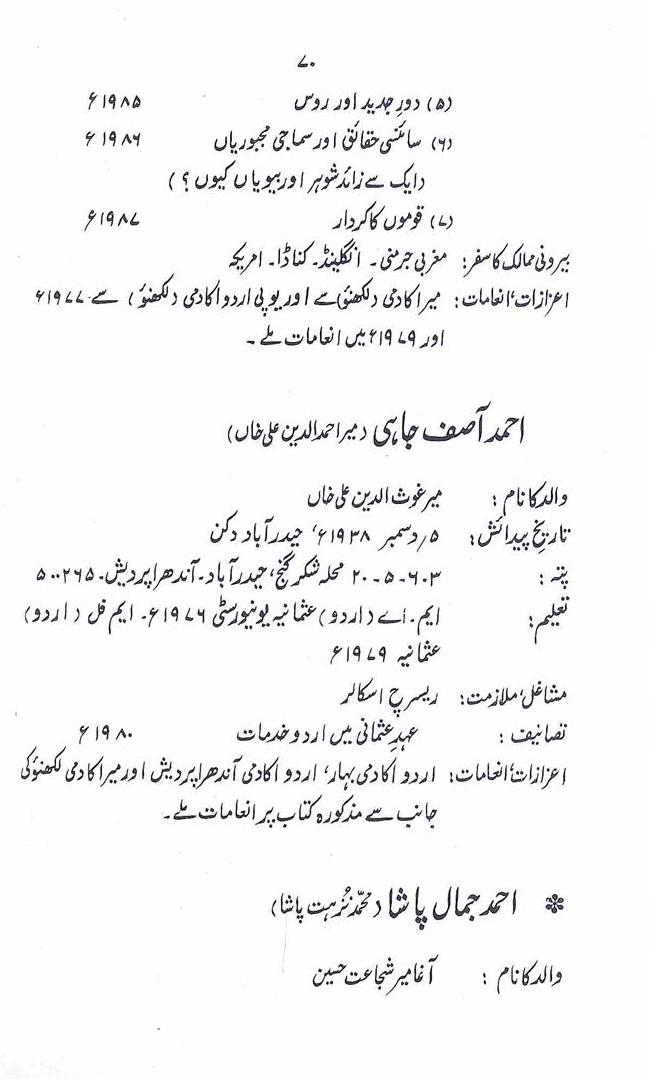 ۷۰
(۵) دورِ جدید اور روس ۱۹۸۵ء
(۶) سائنسی حقائق اور سماجی مجبوریاں ۱۹۸۶ء
(ایک سے زائد شوہر اور بیویاں کیوں؟)
(۷) قوموں کا کردار ۱۹۸۷ء
بیرونی ممالک کا سفر: مغربی جرمنی۔ انگلینڈ۔ کناڈا۔ امریکہ
اعزازات، انعامات: میر اکادمی (لکھنؤ) سے اور یوپی اردو اکادمی (لکھنؤ) سے ۱۹۷۷ء
اور ۱۹۷۹ء میں انعامات ملے۔
احمد آصف جاہی (میر احمد الدین علی خاں)
والد کا نام: میر غوث الدین علی خاں
تاریخ پیدائش: ۵/ دسمبر ۱۹۳۸ء، حیدرآباد دکن
پتہ: ۲۰-۵-۶۰۳ محلہ شکر گنج، حیدرآباد۔ آندھرا پردیش۔ ۵۰۰۲۶۵
تعلیم: ایم۔ اے (اردو) عثمانیہ یونیورسٹی ۱۹۷۶ء۔ ایم فل (اردو)
عثمانیہ ۱۹۷۹ء
مشاغل، ملازمت: ریسرچ اسکالر
تصانیف: عہدِ عثمانی میں اردو خدمات ۱۹۸۰ء
اعزازات، انعامات: اردو اکادمی بہار، اردو اکادمی آندھرا پردیش اور میر اکادمی لکھنؤ کی
جانب سے مذکورہ کتاب پر انعامات ملے۔
* احمد جمال پاشا (محمد نزہت پاشا)
والد کا نام: آغا میر شجاعت حسین